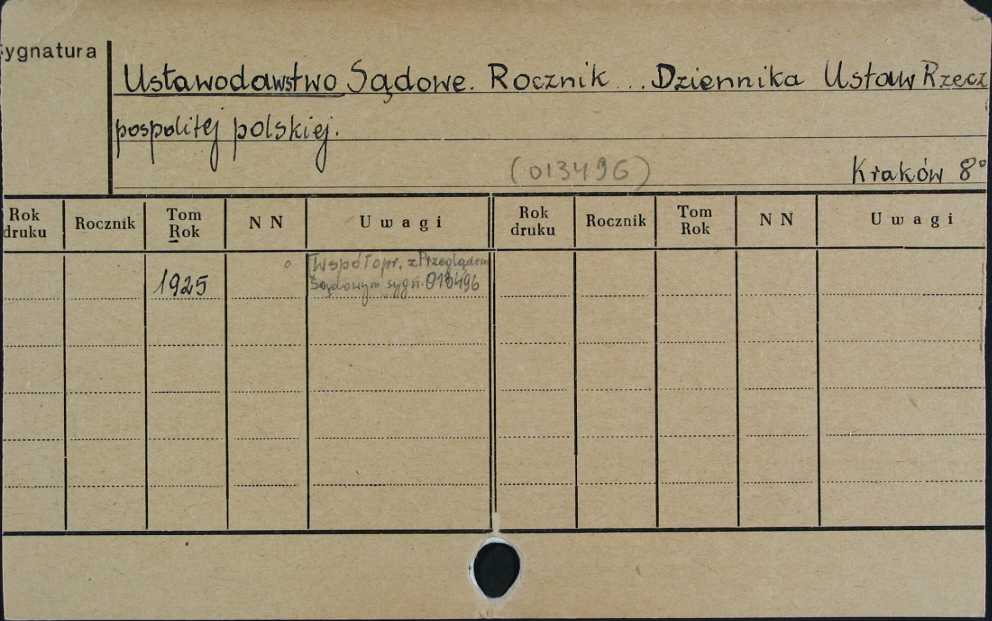 ygnatura
Ustawodawstwo Sądowe. Rocznik ... Dziennika Ustaw Rzecz
pospolitej polskiej.
(013496) Kraków 8°
Rok druku Rocznik Tom Rok N N Uwagi Rok druku Rocznik Tom Rok N N Uwagi
Współopr. z Przeglądem
1925 Sądowym sygn. 013496